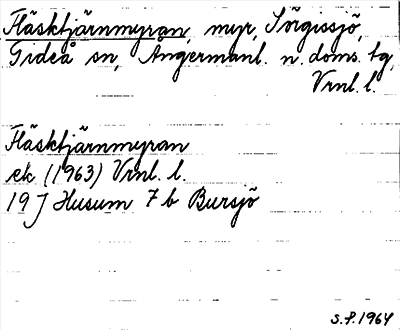 Fläsktjärnmyran, myr, Sörgissjö,
Gideå sn, Ångermanl. n. doms. tg,
Vrnl. l.
Fläsktjärnmyran
ek (1963) Vrnl. l.
19 J Husum 7 b Bursjö
S.F. 1964